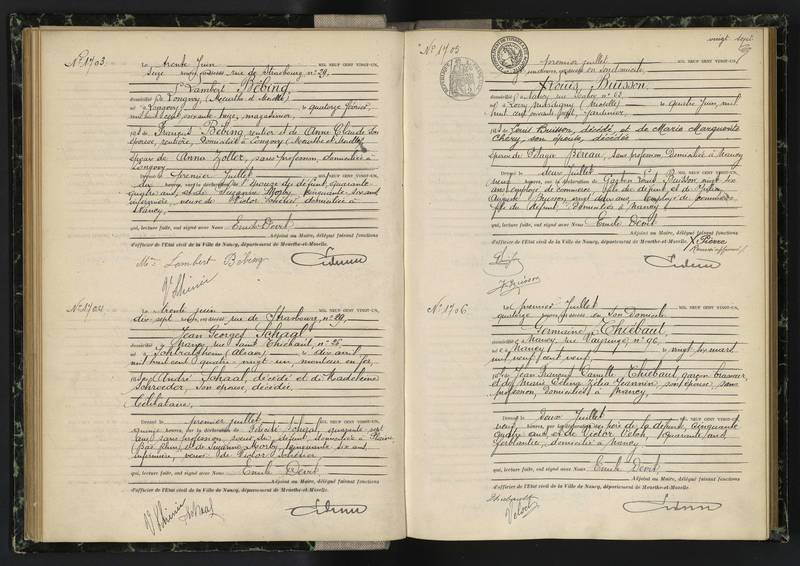 N° 1703
Le trente Juin MIL NEUF CENT VINGT-UN,
Seize heures rue de Strasbourg n° 29,
Lambert Bébing
domicilié à Longwy (Meurthe et Moselle)
né à Longwy le quatorze février
mil huit cent soixante
fils de François Bébing, rentier et de Anne Claude son
épouse, rentière, domiciliés à Longwy (Meurthe et Moselle)
époux de Anna Zoller, sans profession, domiciliée à
Longwy
Dressé le premier Juillet MIL NEUF CENT VINGT-UN,
dix heures, sur la déclaration de l'épouse du défunt, quarante
cinquante six ans
infirmière, veuve de Victor domiciliée à
Nancy,
qui, lecture faite, ont signé avec Nous Emile Devit
Adjoint au Maire, délégué faisant fonctions
d'officier de l'État civil de la Ville de Nancy, département de Meurthe-et-Moselle.
Me Lambert Bébing
N° 1704
Le trente juin MIL NEUF CENT VINGT-UN,
dix sept heures rue de Strasbourg, n° 29,
Jean Georges Schaal
domicilié à Nancy rue Saint Thiébaut, n° 26
né à (Alsace) le dix avril
mil huit cent quatre vingt un monteur en fer,
fils de André Schaal, décédé et de Madeleine
Schroeder, son épouse, décédée
Célibataire,
Dressé le premier juillet MIL NEUF CENT VINGT-UN,
quinze heures, sur la déclaration de Félicité quarante sept
ans sans profession, sœur du défunt, domiciliée à
(Bas Rhin) et de cinquante six ans
infirmière, veuve de Victor
qui, lecture faite, ont signé avec Nous Emile Devit
Adjoint au Maire, délégué faisant fonctions
d'officier de l'État civil de la Ville de Nancy, département de Meurthe-et-Moselle.
vingt sept
N° 1705
Le premier juillet MIL NEUF CENT VINGT-UN,
heures en son domicile
Louis Buisson
domicilié à Nancy, rue n° 62
né à (Moselle) le quatre Juin mil
huit cent soixante jardinier
fils de Louis Buisson, décédé, et de Marie Marguerite
Chéry, son épouse, décédée
époux de Pelagie Béreau, sans profession domiciliée à Nancy
Dressé le deux juillet MIL NEUF CENT VINGT-UN,
neuf heures, sur la déclaration de Gaston Louis Buisson vingt six
ans employé de commerce fils du défunt et de
Auguste Buisson vingt deux ans employé de commerce
fils du défunt domiciliés à Nancy
qui, lecture faite, ont signé avec Nous Emile Devit
Adjoint au Maire, délégué faisant fonctions
d'officier de l'État civil de la Ville de Nancy, département de Meurthe-et-Moselle. X Pierre
Buisson
N° 1706
Le premier Juillet MIL NEUF CENT VINGT-UN,
quatorze heures en son domicile
Germaine Thiébaut
domiciliée à Nancy rue n° 96
née à Nancy le vingt six mars
mil neuf cent neuf,
fille de Jean François Camille Thiébaut garçon brasseur
et de Marie Célina Zélia Jeannin son épouse, sans
profession, domiciliés à Nancy
Dressé le deux Juillet MIL NEUF CENT VINGT-UN,
neuf heures, sur la déclaration du père de la défunte, cinquante
quatre ans et de Victor Veloh, quarante ans
ferblantier, domicilié à Nancy
qui, lecture faite, ont signé avec Nous Emile Devit
Adjoint au Maire, délégué faisant fonctions
d'officier de l'État civil de la Ville de Nancy, département de Meurthe-et-Moselle.
Thiébaut
Veloh